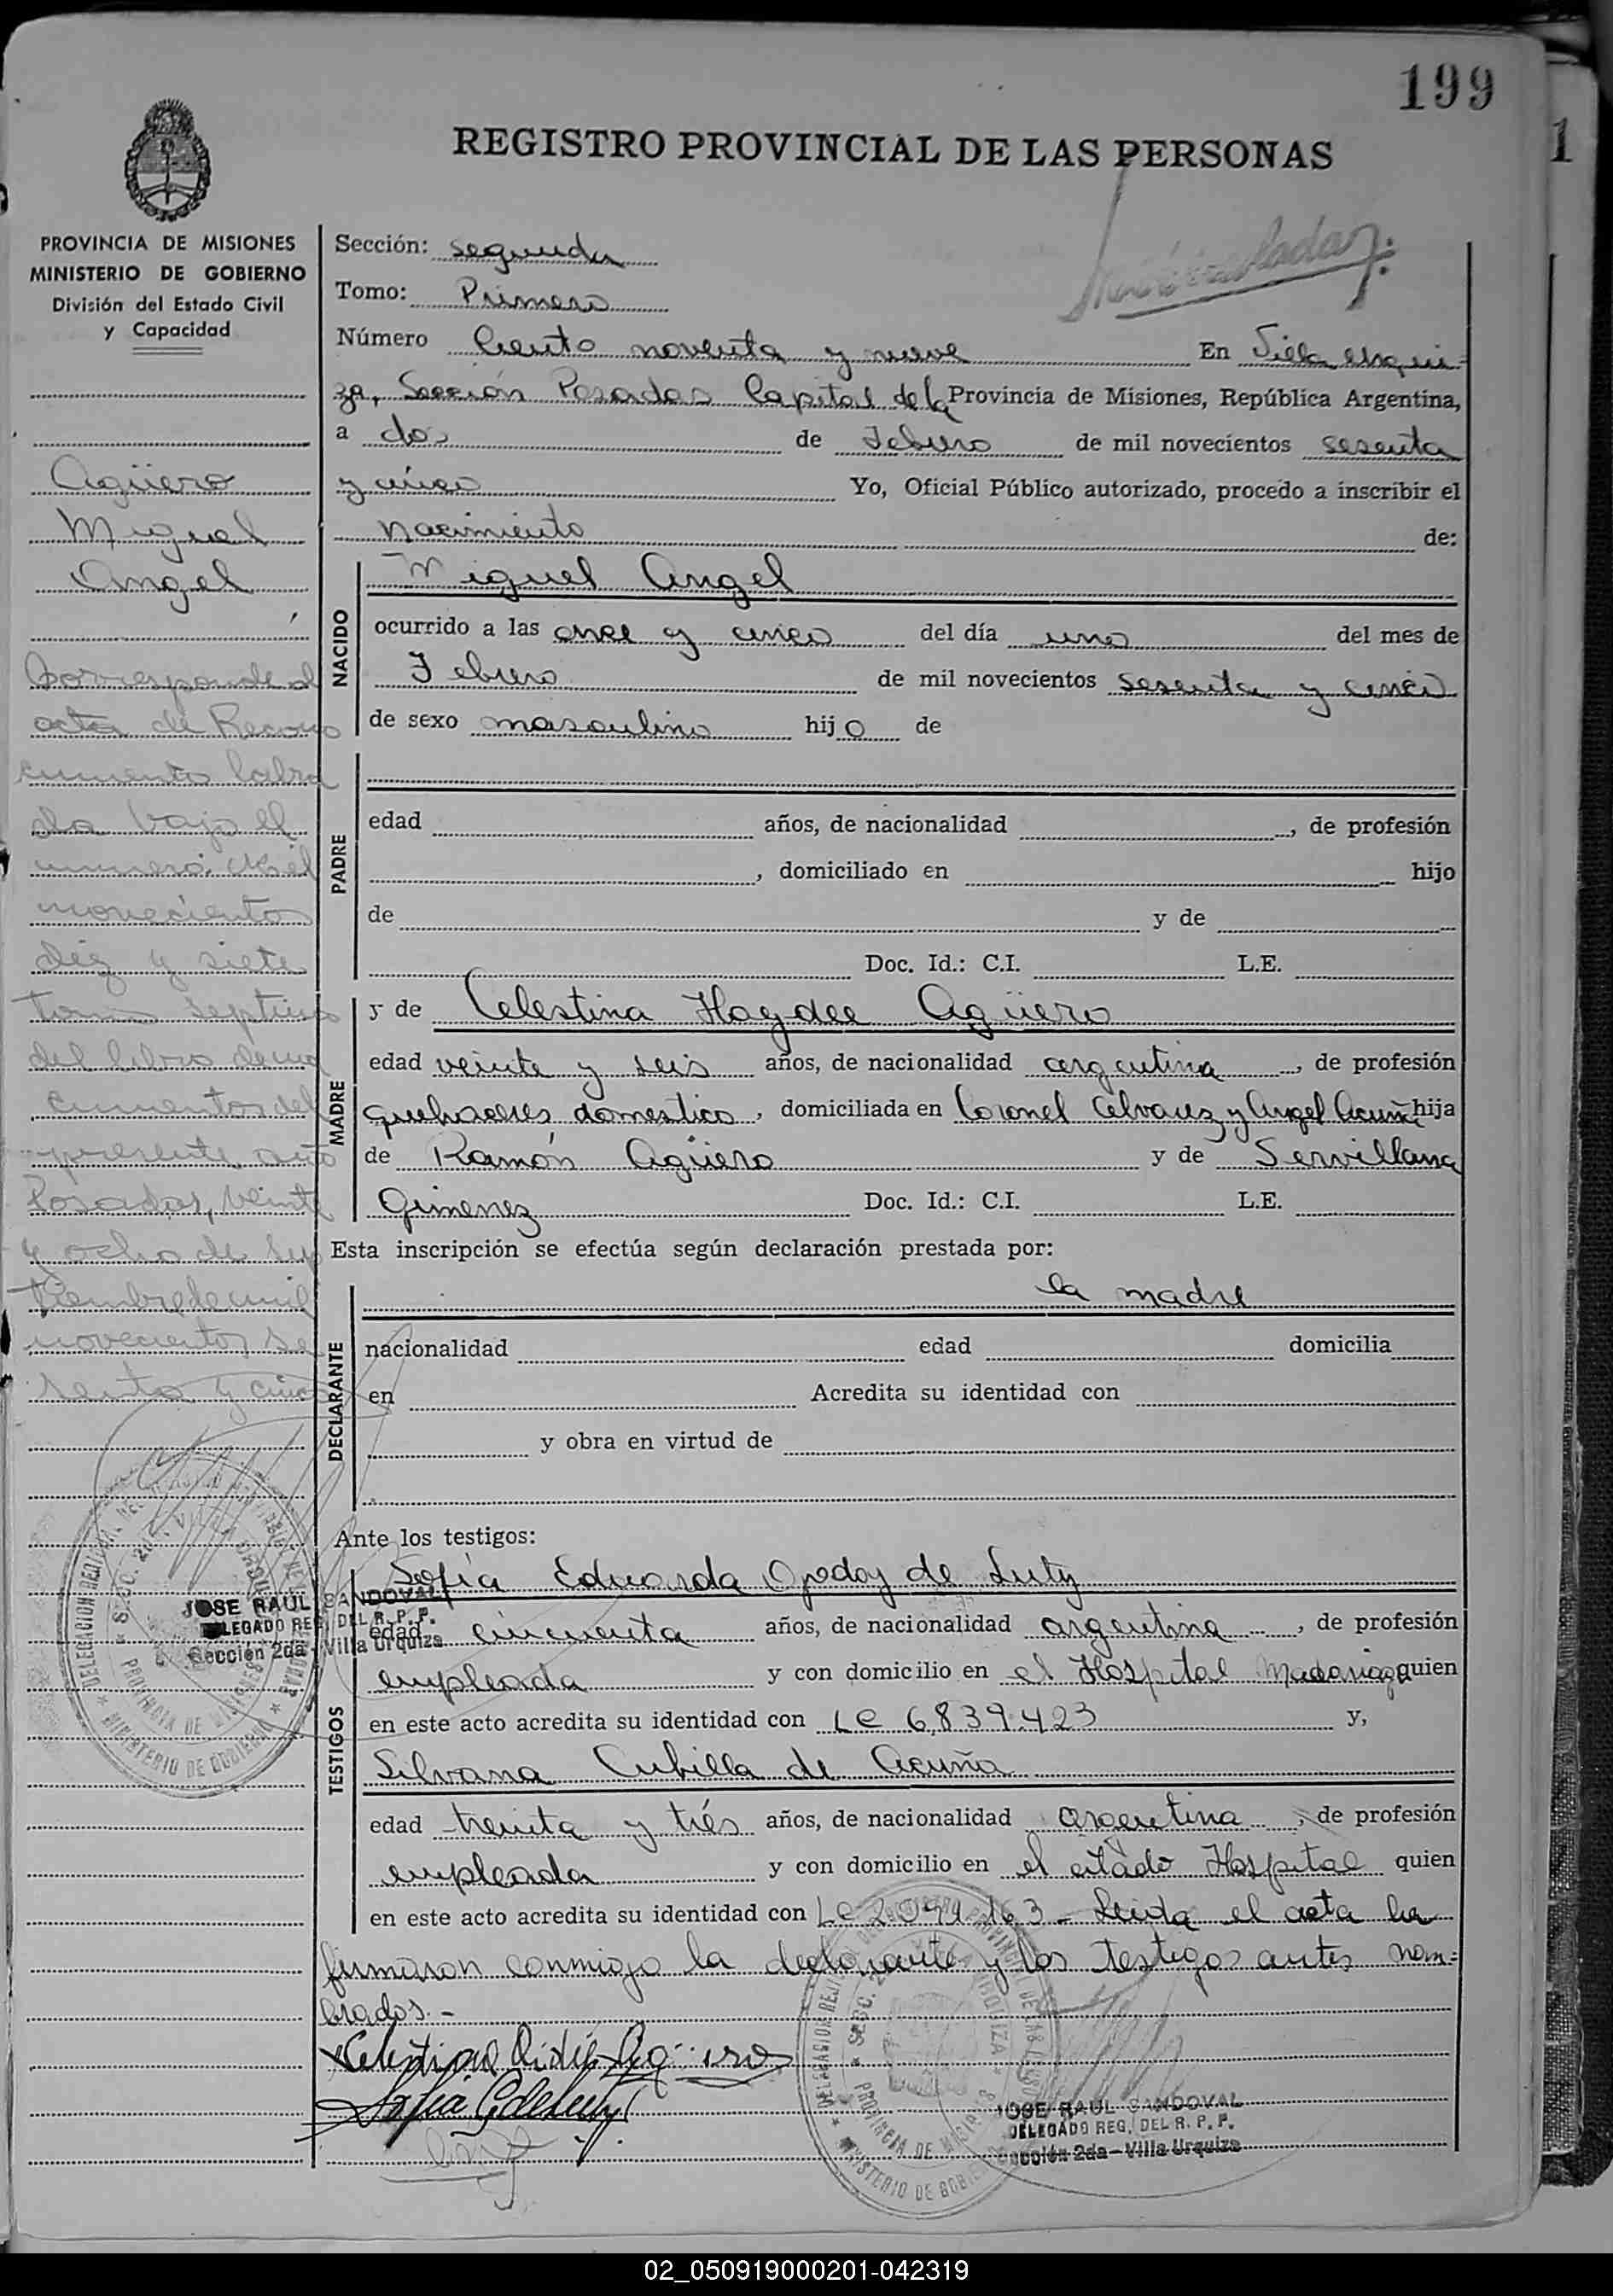 199
REGISTRO PROVINCIAL DE LAS PERSONAS
PROVINCIA DE MISIONES
MINISTERIO DE GOBIERNO
División del Estado Civil
y Capacidad
Agüero
Miguel
Angel
Corresponde al
acta de Recono
cimiento labra
da bajo el
numero Mil
novecientos
diez y siete
tomo septimo
del libro de
del
presente año
Posadas, veinte
y ocho de sep
tiembre de mil
novecientos se
senta y cinco
Sección: segunda
Tomo: Primero
Número Ciento noventa y nueve En Villa Urqui=
za, Sección Posadas Capital de la Provincia de Misiones, República Argentina,
a dos de Febrero de mil novecientos sesenta
y cinco Yo, Oficial Público autorizado, procedo a inscribir el
nacimiento de:
NACIDO
Miguel Angel
ocurrido a las once y cinco del día uno del mes de
Febrero de mil novecientos sesenta y cinco
de sexo masculino hijo de
PADRE
edad años, de nacionalidad , de profesión
, domiciliado en hijo
de y de
Doc. Id.: C.I. L.E.
MADRE
y de Celestina Haydee Agüero
edad veinte y seis años, de nacionalidad argentina , de profesión
quehaceres domestico, domiciliada en Coronel Alvarez y Angel Acuña hija
de Ramón Agüero y de Servillana
Gimenez Doc. Id.: C.I. L.E.
Esta inscripción se efectúa según declaración prestada por:
DECLARANTE
la madre
nacionalidad edad domicilia
en Acredita su identidad con
y obra en virtud de
Ante los testigos:
TESTIGOS
Sofia Eduarda Ojeda de Luty
edad cincuenta años, de nacionalidad argentina , de profesión
empleada y con domicilio en el Hospital Madariaga quien
en este acto acredita su identidad con LC 6.839.423 y,
Silvana Cubilla de Acuña
edad treinta y trés años, de nacionalidad argentina , de profesión
empleada y con domicilio en el citado Hospital quien
en este acto acredita su identidad con LC 163 - Leida el acta la
firmaron conmigo la declarante y los testigos antes nom=
brados.-
JOSE RAUL SANDOVAL
DELEGADO REG. DEL R. P. P.
Sección 2da - Villa Urquiza
JOSE RAUL SANDOVAL
DELEGADO REG. DEL R. P. P.
Sección 2da - Villa Urquiza
02_050919000201-042319